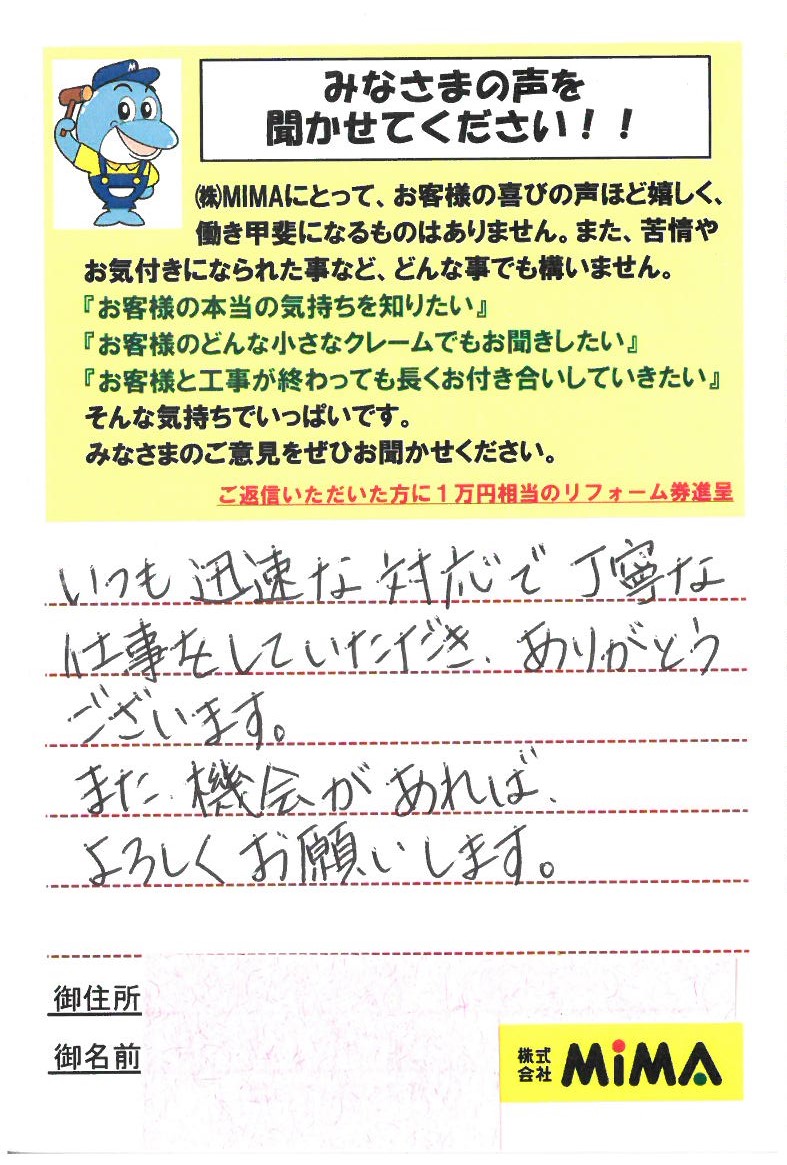 M
みなさまの声を
聞かせてください！！
㈱MIMAにとって、お客様の喜びの声ほど嬉しく、
働き甲斐になるものはありません。また、苦情や
お気付きになられた事など、どんな事でも構いません。
『お客様の本当の気持ちを知りたい』
『お客様のどんな小さなクレームでもお聞きしたい』
『お客様と工事が終わっても長くお付き合いしていきたい』
そんな気持ちでいっぱいです。
みなさまのご意見をぜひお聞かせください。
ご返信いただいた方に１万円相当のリフォーム券進呈
いつも迅速な対応で丁寧な
仕事をしていただき、ありがとう
ございます。
また、機会があれば、
よろしくお願いします。
御住所
御名前
株式
会社 MiMA